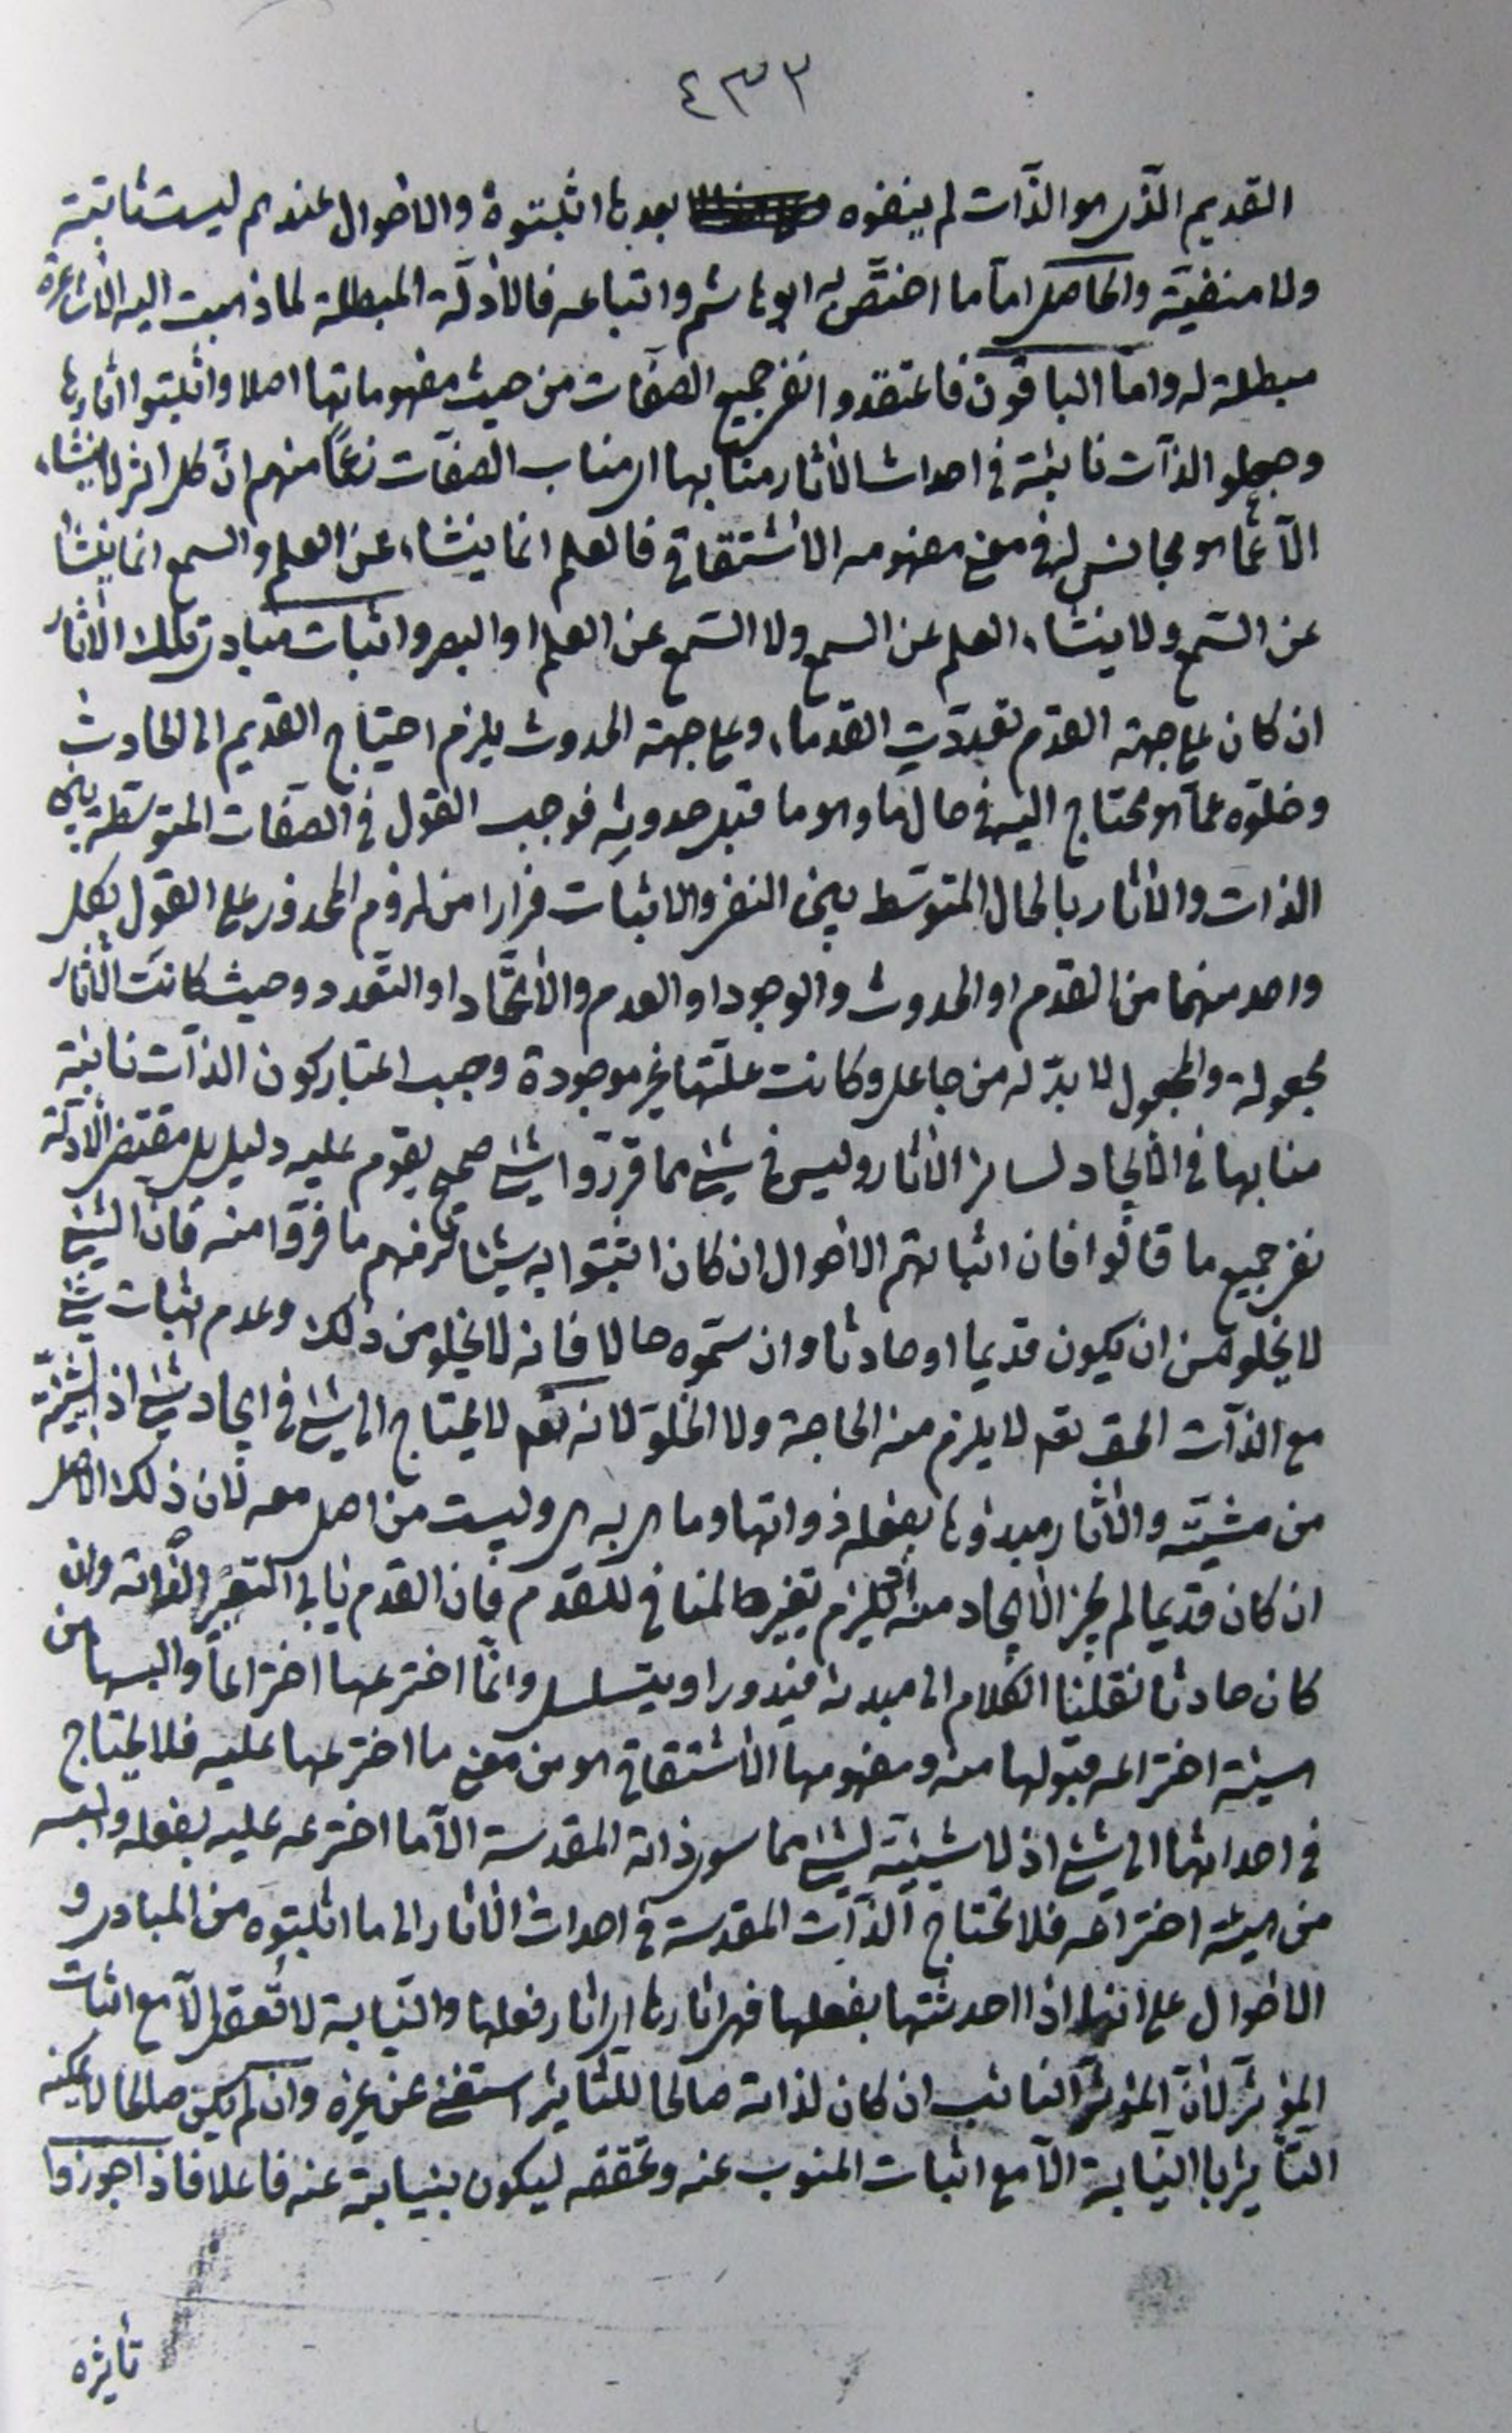 ٤٣٢
القديم الذى هو الذات لم ينفوه بعد ما اثبتوه والاحوال عندهم ليست ثابتة
ولا منفية والحاصل اما ما اختص به ابو هاشم واتباعه فالادلة المبطلة لما ذهبت اليه الاشاعرة
مبطلة له واما الباقون فاعتقدوا نفى جميع الصفات من حيث مفهوماتها اصلا واثبتوا اثارها
وجعلوا الذات نائبة فى احداث الاثار منابها اى مناب الصفات زعما منهم ان كل اثر لا ينشاء
الا عما هو مجانس له فى معنى مفهومه الاشتقاقى فالعلم انما ينشاء عن العلم والسمع انما ينشأ
عن السمع ولا ينشاء العلم عن السمع ولا السمع عن العلم او البصر واثبات مبادى تلك الاثار
ان كان على جهة القدم تعددت القدماء وعلى جهة الحدوث يلزم احتياج القديم الى الحادث
وخلوه عما هو محتاج اليه فى حال ما وهو ما قبل حدوثه فوجب القول فى الصفات المتوسطة بين
الذات والاثار بالحال المتوسط بين النفى والاثبات فرارا من لزوم المحذور على القول بكل
واحد منهما من القدم او الحدوث والوجود او العدم والاتحاد او التعدد وحيث كانت الاثار
مجعولة والمجعول لا بد له من جاعل وكانت علتها غير موجودة وجب اعتبار كون الذات نائبة
منابها فى الايجاد لسائر الاثار وليس فى شئ مما قرروا شئ صحيح يقوم عليه دليل بل مقتضى الادلة
نفى جميع ما قالوا فان اثباتهم الاحوال ان كان اثبتوا به شيئا لزمهم ما فروا منه فان الشئ
لا يخلو من ان يكون قديما او حادثا وان سموه حالا فانه لا يخلو من ذلك وعدم اثبات شئ
مع الذات الحق تعالى لا يلزم منه الحاجة ولا الخلو لانه تعالى لا يحتاج الى شئ فى ايجاد شئ اذ الشيئية
من مشيته والاثار مبدؤها بفعله ذواتها وما هى به هى وليست من اصل معه لان ذلك الاصل
ان كان قديما لم يجز الايجاد منه لئلا يلزم تغيره المنافى للقدم فان القدم ينافى التغير لذاته وان
كان حادثا نقلنا الكلام الى مبدئه فيدور او يتسلسل وانما اخترعها اختراعا والبسها من
هيئة اختراعه قبولها منه ومفهومها الاشتقاقى هو من معنى ما اخترعها عليه فلا يحتاج
فى احداثها الى شئ اذ لا شيئية لشئ مما سوى ذاته المقدسة الا ما اخترعه عليه بفعله والبسه
من هيئة اختراعه فلا تحتاج الذات المقدسة فى احداث الاثار الى ما اثبتوه من المبادى و
الاحوال على انها اذا احدثتها بفعلها فهى اثارها اى اثار فعلها والنيابة لا تعقل الا مع اثبات
المؤثر لان المؤثر النائب ان كان لذاته صالحا للتاثير استغنى عن غيره وان لم يكن صالحا لا يمكنه
التأثير بالنيابة الا مع اثبات المنوب عنه وتحققه ليكون بنيابته عنه فاعلا فاذا جوزوا
تأثيره